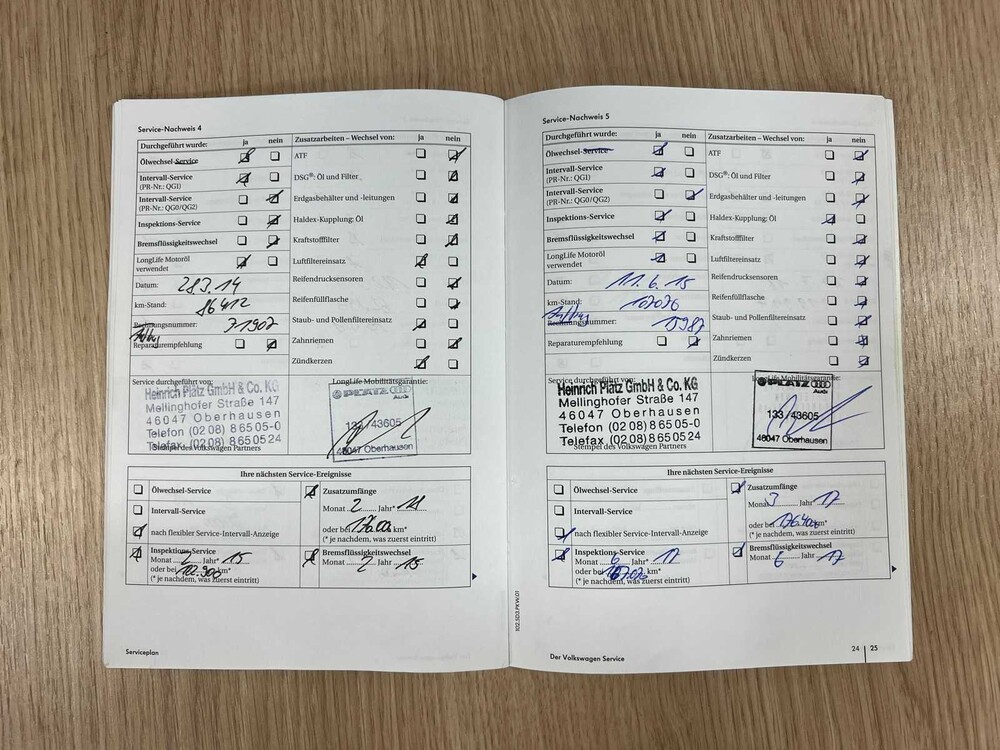 Service-Nachweis 4
Durchgeführt wurde: ja nein
Ölwechsel-Service
Intervall-Service
(PR-Nr.: QGI)
Intervall-Service
(PR-Nr.: QG0/QG2)
Inspektions-Service
Bremsflüssigkeitswechsel
LongLife Motoröl
verwendet
Datum: 28.3.14
km-Stand: 86412
Rechnungsnummer: 71907
Reparaturempfehlung
Zusatzarbeiten – Wechsel von: ja nein
ATF
DSG®: Öl und Filter
Erdgasbehälter und -leitungen
Haldex-Kupplung: Öl
Kraftstofffilter
Luftfiltereinsatz
Reifendrucksensoren
Reifenfüllflasche
Staub- und Pollenfiltereinsatz
Zahnriemen
Zündkerzen
Service durchgeführt von:
Heinrich Platz GmbH & Co. KG
Mellinghofer Straße 147
46047 Oberhausen
Telefon (02 08) 8 65 05-0
Telefax (02 08) 8 65 05 24
Stempel des Volkswagen Partners
LongLife Mobilitätsgarantie:
PLATZ
Audi
133/43605
46047 Oberhausen
Ihre nächsten Service-Ereignisse
Ölwechsel-Service
Intervall-Service
nach flexibler Service-Intervall-Anzeige
Inspektions-Service
Monat 2 Jahr* 15
oder bei km*
(* je nachdem, was zuerst eintritt)
Zusatzumfänge
Monat 2 Jahr*
oder bei km*
(* je nachdem, was zuerst eintritt)
Bremsflüssigkeitswechsel
Monat 2 Jahr 15
Serviceplan
102.5D3.PKW.01
Service-Nachweis 5
Durchgeführt wurde: ja nein
Ölwechsel-Service
Intervall-Service
(PR-Nr.: QGI)
Intervall-Service
(PR-Nr.: QG0/QG2)
Inspektions-Service
Bremsflüssigkeitswechsel
LongLife Motoröl
verwendet
Datum: 11.6.15
km-Stand: 107026
Rechnungsnummer: 15987
Reparaturempfehlung
Zusatzarbeiten – Wechsel von: ja nein
ATF
DSG®: Öl und Filter
Erdgasbehälter und -leitungen
Haldex-Kupplung: Öl
Kraftstofffilter
Luftfiltereinsatz
Reifendrucksensoren
Reifenfüllflasche
Staub- und Pollenfiltereinsatz
Zahnriemen
Zündkerzen
Service durchgeführt von:
Heinrich Platz GmbH & Co. KG
Mellinghofer Straße 147
46047 Oberhausen
Telefon (02 08) 8 65 05-0
Telefax (02 08) 8 65 05 24
Stempel des Volkswagen Partners
LongLife Mobilitätsgarantie:
PLATZ
Audi
133/43605
46047 Oberhausen
Ihre nächsten Service-Ereignisse
Ölwechsel-Service
Intervall-Service
nach flexibler Service-Intervall-Anzeige
Inspektions-Service
Monat 6 Jahr* 17
oder bei km*
(* je nachdem, was zuerst eintritt)
Zusatzumfänge
Monat 3 Jahr* 17
oder bei km*
(* je nachdem, was zuerst eintritt)
Bremsflüssigkeitswechsel
Monat 6 Jahr 17
Der Volkswagen Service
24 | 25